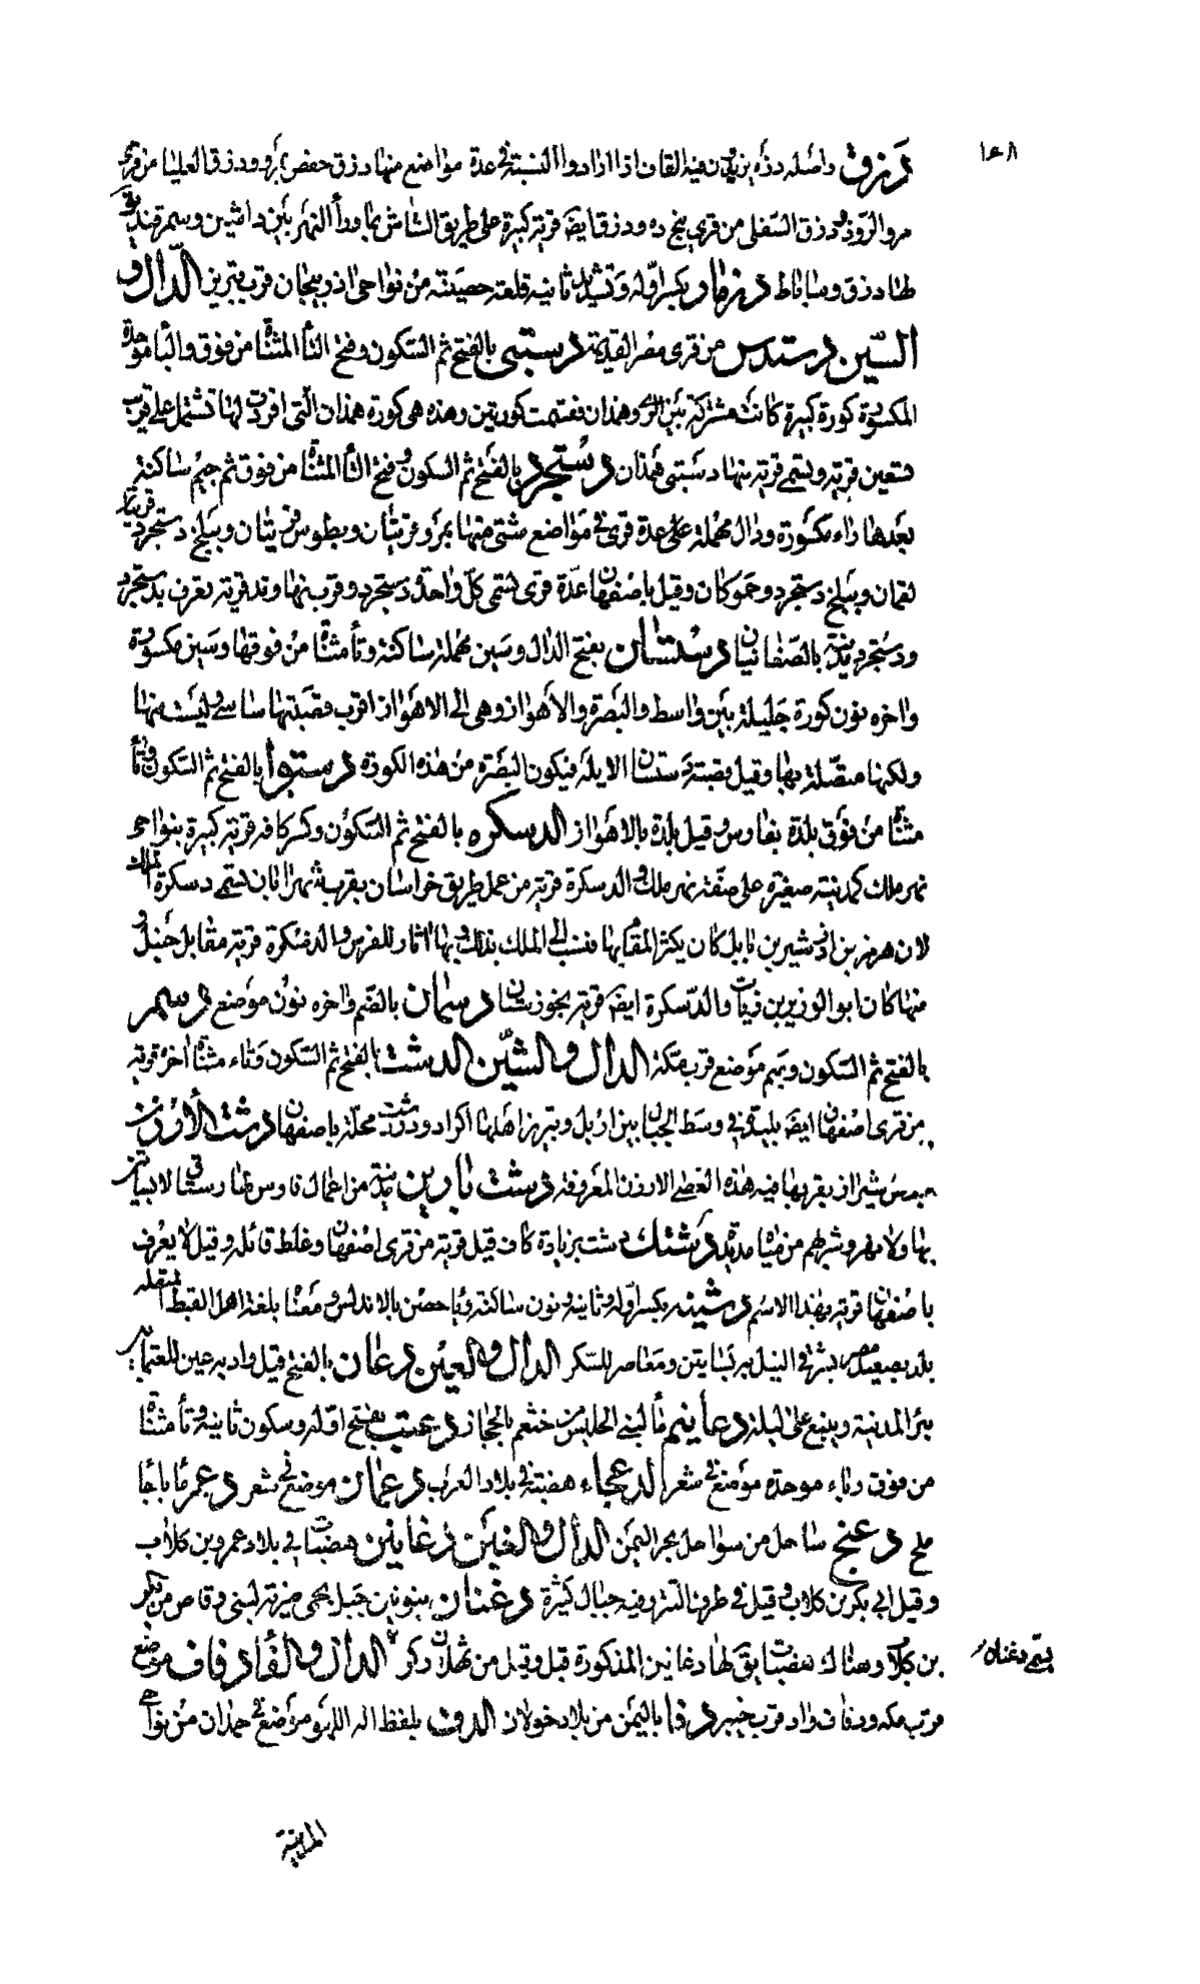 ١٠٨
دزق واصله دزه يزيدون فيه القاف اذا ارادوا النسبة في عدة مواضع منها دزق حفص بمرو ودزق العليا من قرى
مرو الروذ ودزق السفلى من قرى پنج ده ودزق ايضا قرية كبيرة على طريق الشاش بما ورأ النهر بين زامين وسمرقند
لها دزق وساباط دزمار بكسر اوله وتشديد ثانيه قلعة حصينة من نواحى اذربيجان قرب تبريز الدال و
السين دستدس من قرى مصر القديمة دستبى بالفتح ثم السكون وفتح التأ المثناة من فوق والبا موحدة
المكسورة كورة كبيرة كانت مشتركة بين الرى وهمذان فقسمت كورتين وهذه هى كورة همذان التى افردت لها تشتمل على قريب
تسعين قرية ويسمى قرية منها دستبى همذان دستجرد بالفتح ثم السكون وفتح التأ المثناة من فوق ثم جيم ساكنة
بعدها راء مكسورة ودال مهملة على عدة قرى في مواضع شتى منها بمرو قريتان وبطوس قريتان وببلخ دستجرد
لقمان وببلخ دستجرد جموكان وقيل باصفهان عدة قرى تسمى كل واحدة دستجرد وقرب نهاوند قرية تعرف بدستجرد
ودستجرد مدينة بالصغانيان دستسان بفتح الدال وسين مهملة ساكنة وتأ مثناة من فوقها وسين مكسورة
واخره نون كورة جليلة بين واسط والبصرة والاهواز وهى الى الاهواز اقرب وقصبتها بساسى وليست منها
ولكنها متصلة بها وقيل قصبة دستسان الابله فيكون البصرة من هذه الكورة دستوا بالفتح ثم السكون وتأ
مثناة من فوق بلدة بفارس وقيل بلدة بالاهواز الدسكره بالفتح ثم السكون وكسر كافه قرية كبيرة بنواحى
نهر ملك كمدينة صغيرة على ضفة نهر ملك والدسكرة قرية من عمل طريق خراسان بقرب شهرابان تسمى دسكرة الملك
لان هرمز بن اردشير بن بابك كان يكثر المقام بها فنسبت الى الملك بذلك وبها اثار للفرس والدسكرة قرية مقابل جبل و
منها كان ابو الوزير بن زيات والدسكرة ايضا قرية بخوزستان دسمان بالضم واخره نون موضع دسمر
بالفتح ثم السكون وبميم موضع قرب مكة الدال والشين الدشت بالفتح ثم السكون وتاء مثناة اخره قرية
من قرى اصفهان ايضا بليدة في وسط الجبال بين اربل وتبريز اهلها اكراد ودردشت محلة باصفهان دشت الأرزن
شيراز بقربها فيه هذه العصى الارزن المعروفة دشت بارين مدينة من اعمال فارس لها رستاق لا بساتين
بها ولا نهر وشربهم من مياه ردية دشتك دشت بزيادة كاف قيل قرية من قرى اصفهان وغلط قائله وقيل لا يعرف
باصفهان قرية بهذا الاسم دشينه بكسر اوله وثانيه ونون ساكنة ويا حصن بالاندلس ومعناه بلغة اهل القبط
بلد بصعيد مصر بشرقى النيل بر بساتين ومعاصر للسكر الدال والعين دعان بالفتح قيل واد به عين للعثمانيين
بئر المدينة وينبع على ليلة دعانيم مأ لبنى الحليس من خثعم بالحجاز دعتب بفتح اوله وسكون ثانيه وتأ مثناة
من فوق وباء موحدة موضع في شعر الدعجاء هضبة في بلاد العرب دعمان موضع في شعر دعمر ما باجا
ملح دعنج ساحل من سواحل بحر اليمن الدال والغين دغانين هضبات في بلاد عمرو بن كلاب
وقيل ابى بكر بن كلاب وقيل في طرف التبر وفيه جبال كثيرة دغنان بنونين جبل بحمى ضرية لبنى وقاص من بنى بكر
بن كلاب وهناك هضبات يق لها دغانين المذكورة قبل وقيل من ثهلان وذكر الدال والفا دفاق موضع
قرب مكة ودفاق واد قرب خيبر دفا باليمن من بلاد خولان الدف بلفظ اله اللهو موضع في جمدان من نواحى
المدينة
يسمى دغنان